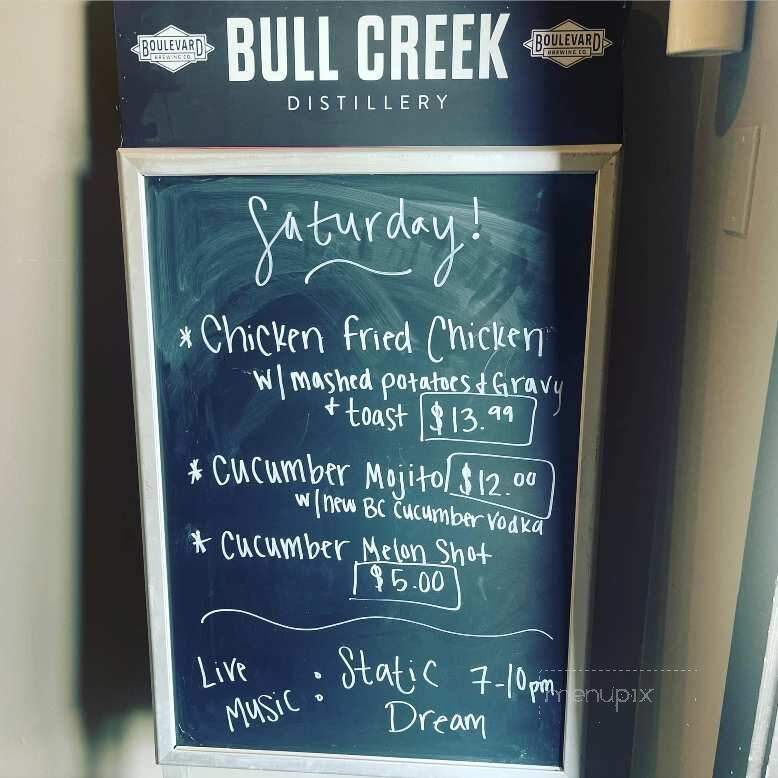 BOULEVARD BREWING CO. BULL CREEK BOULEVARD BREWING CO.
DISTILLERY
Saturday!
* Chicken Fried Chicken
w/ mashed potatoes & Gravy
& toast $13.99
* Cucumber Mojito $12.00
w/new BC Cucumber Vodka
* Cucumber Melon Shot
$5.00
Live Music: Static 7-10pm
Dream
menupix